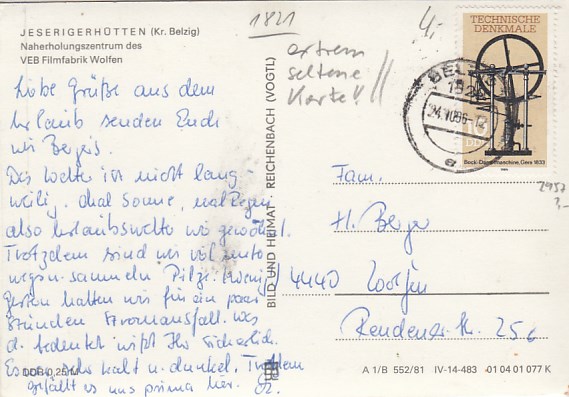 JESERIGERHÜTTEN (Kr. Belzig)
Naherholungszentrum des
VEB Filmfabrik Wolfen
1821
extrem
seltene
Karte!!
TECHNISCHE
DENKMALE
BELZIG
1820
DDR
Beck-Dampfmaschine, Gera 1833
Liebe Grüße aus dem
Urlaub senden Euch
wir Bergers.
Das Wetter ist nicht lang-
weilig. Mal Sonne, mal Regen
also Urlaubswetter wie gewohnt.
Trotzdem sind wir viel unter-
wegs u. sammeln Pilze.
Gestern hatten wir für ein paar
Stunden Stromausfall. Was
d. bedeutet wißt Ihr sicherlich.
Es war sehr kalt u. dunkel. Trotzdem
gefällt es uns prima hier.
DDR 0,25 M
BILD UND HEIMAT · REICHENBACH (VOGTL)
Fam.
H. Berger
4440 Wolfen
25c
2957
A 1/B 552/81 IV-14-483 01 04 01 077 K